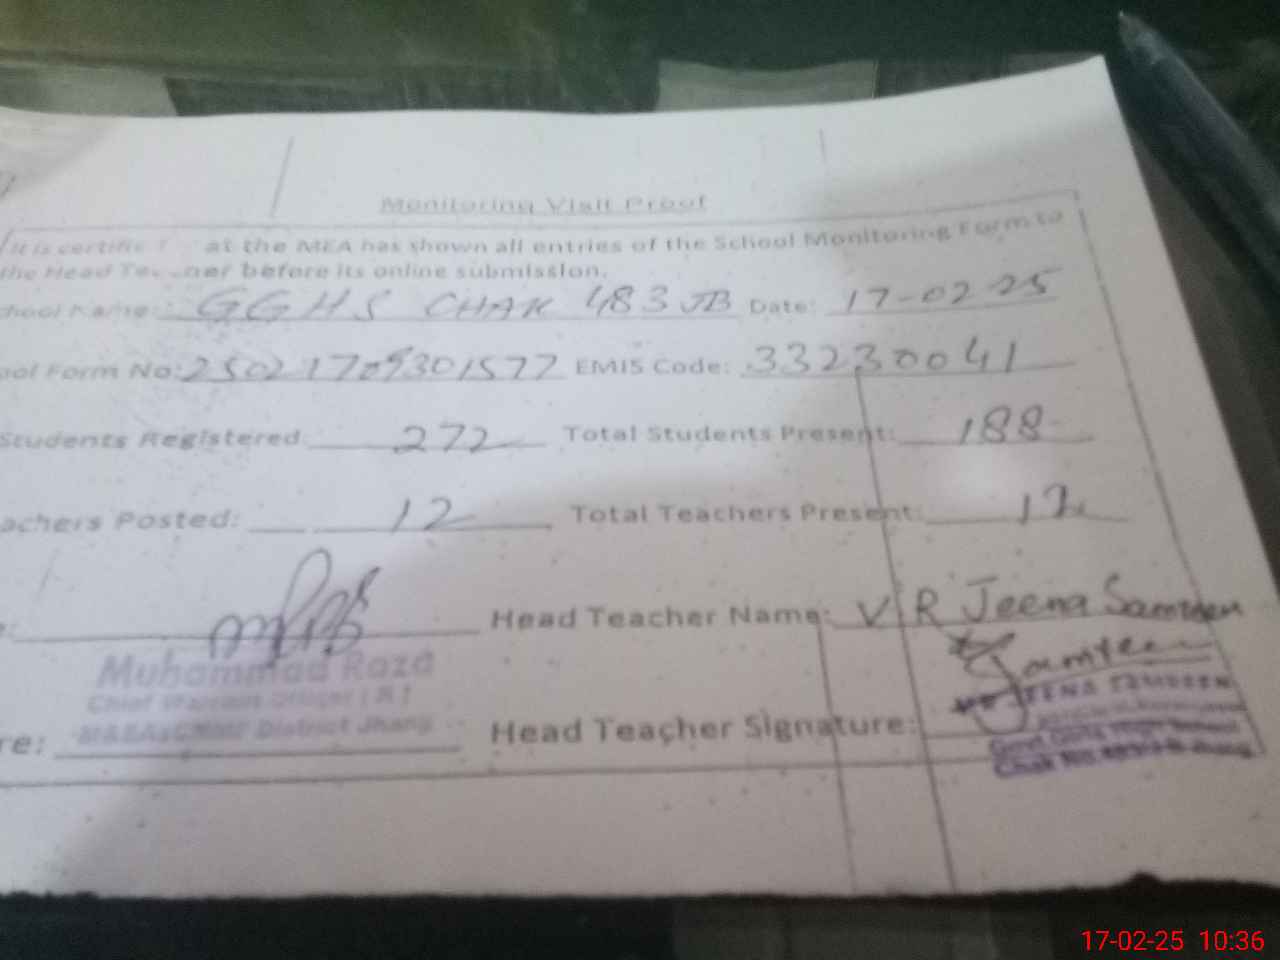 Monitoring Visit Proof
It is certifie at the MEA has shown all entries of the School Monitoring Form to
the Head Te ner before its online submission.
hool Name: GGHS CHAK 483 JB Date: 17-02-25
ool Form No: 25021709301577 EMIS Code: 33230041
Students Registered: 272 Total Students Present: 188
achers Posted: 12 Total Teachers Present: 12
Head Teacher Name: V R Jeena Samreen
Muhammad Raza
Chief Warrant Officer (R)
District Jhang
re: Head Teacher Signature:
Govt Girls High School
Chak No. 483 J B Jhang
17-02-25 10:36